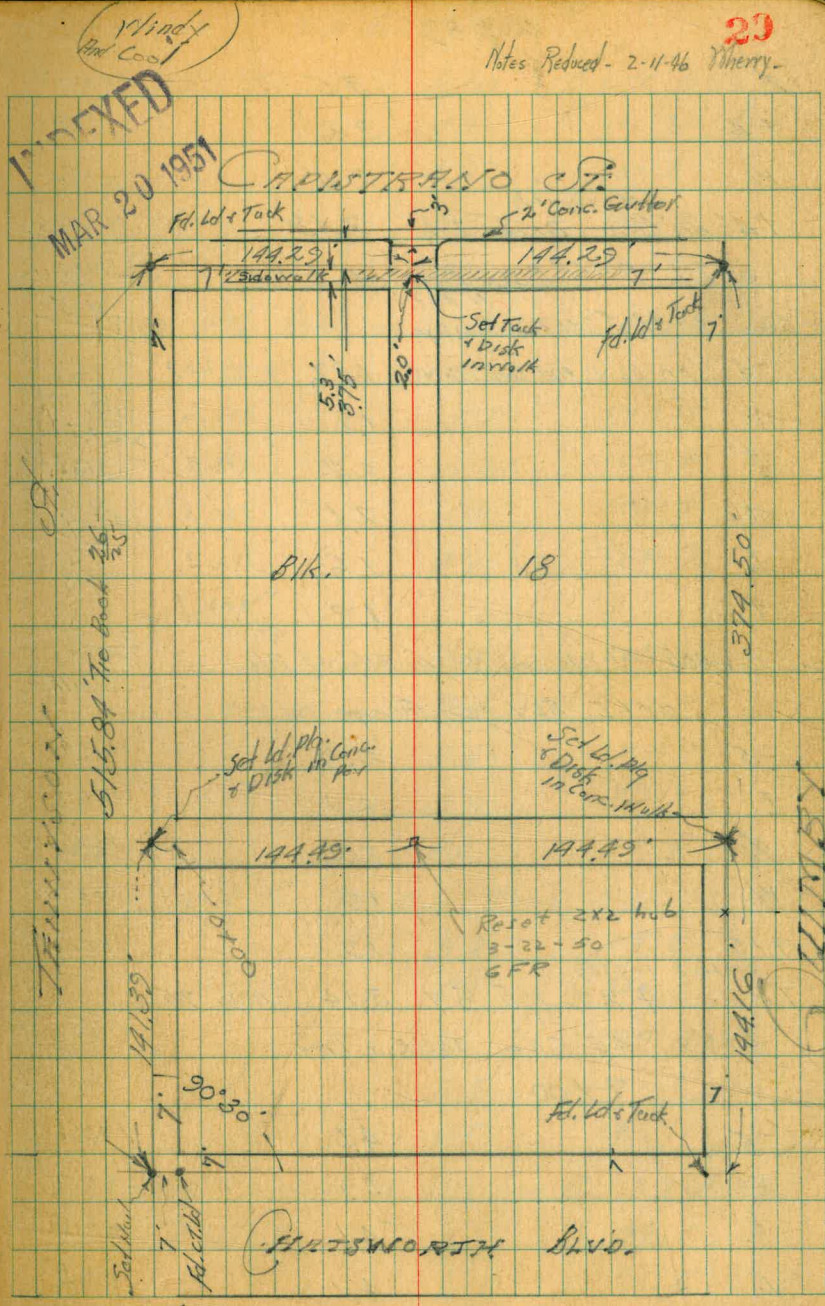 Windy
And Cool
29
Notes Reduced - 2-11-46 Wherry-
INDEXED
MAR 20 1951
CAPISTRANO ST.
Fd. Ld & Tack
3'
2' Conc. Gutter
144.29'
144.29'
7'
Sidewalk
7'
7'
Set Tack
& Disk
in walk
Fd. Ld & Tack
7'
5.3'
3.75'
20'
St.
515.84' Tie Book 26/25
Blk.
18
374.50'
Set Ld. Plg.
& Disk in Conc.
Set Ld. Plg
& Disk
in Conc. Walk
144.49'
144.49'
TENNYSON
Reset 2x2 hub
3-22-50
GFR
QUIMBY
141.39'
144.16'
90°30'
7'
7'
Fd. Ld & Tack
7'
7'
Set Nail
7'
CHATSWORTH BLVD.